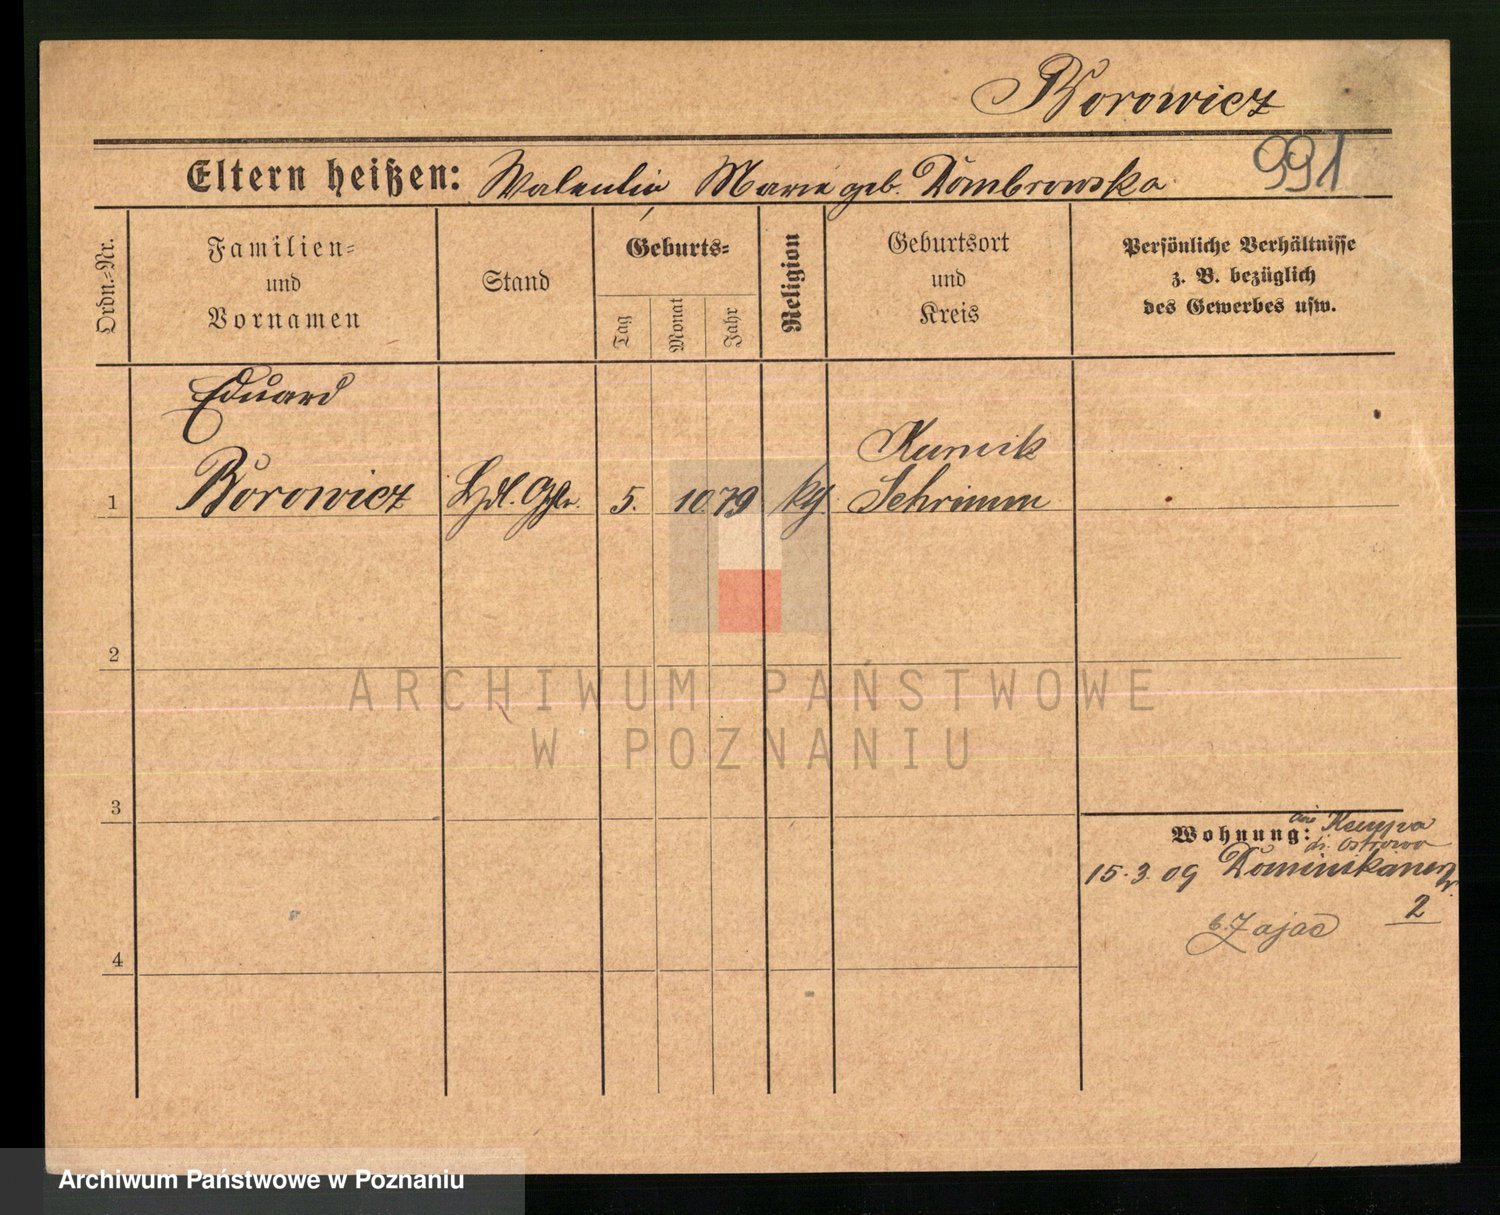 Borowicz
991
Eltern heißen: Valentin Marie geb. Dombrowska
Ordn.=Nr.
Familien=
und
Vornamen
Stand
Geburts=
Tag
Monat
Jahr
Religion
Geburtsort
und
Kreis
Persönliche Verhältnisse
z. B. bezüglich
des Gewerbes usw.
Eduard
1 Borowicz Hdl. Ghlr. 5. 10 79 kth. Kurnik
Schrimm
2
ARCHIWUM PAŃSTWOWE
W POZNANIU
3
Wohnung: aus Kempa
Ostrowo
15.3.09 Dominikanerstr.
2
b. Zając
4
Archiwum Państwowe w Poznaniu